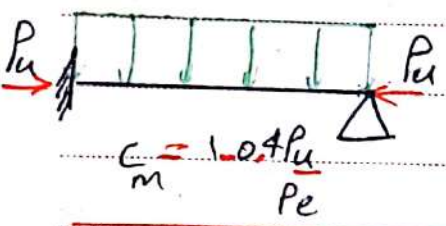 Pu Pu
Cm = 1-0.4Pu
Pe